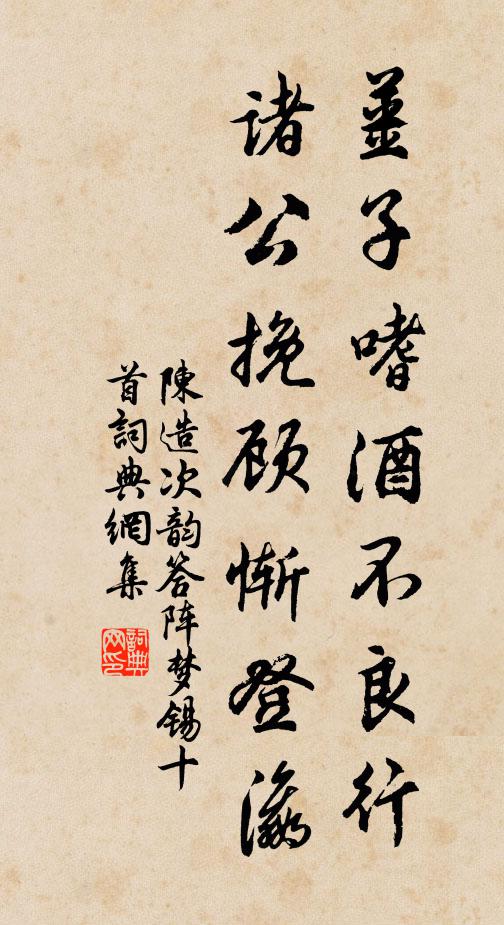 薑子嗜酒不良行
诸公挽顾惭登瀛
陳造次韵答阵梦锡十
首詞典網集
詞典
网印